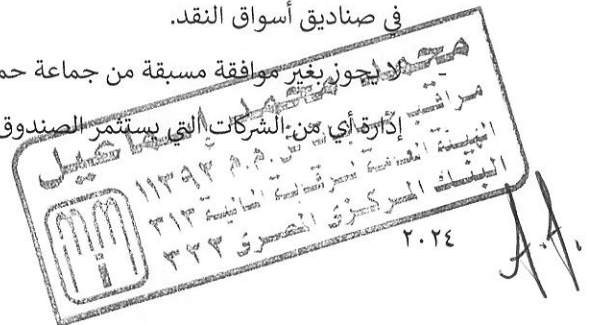 في صناديق أسواق النقد.
- لا يجوز بغير موافقة مسبقة من جماعة
إدارة أي من الشركات التي يستثمر الصندوق
محمد محمد إسماعيل
مراقب
س.م.م ١١٣٩٢
الهيئة العامة للرقابة المالية ٣١٣
البنك المركزي المصري ٣٢٢
٢٠٢٤